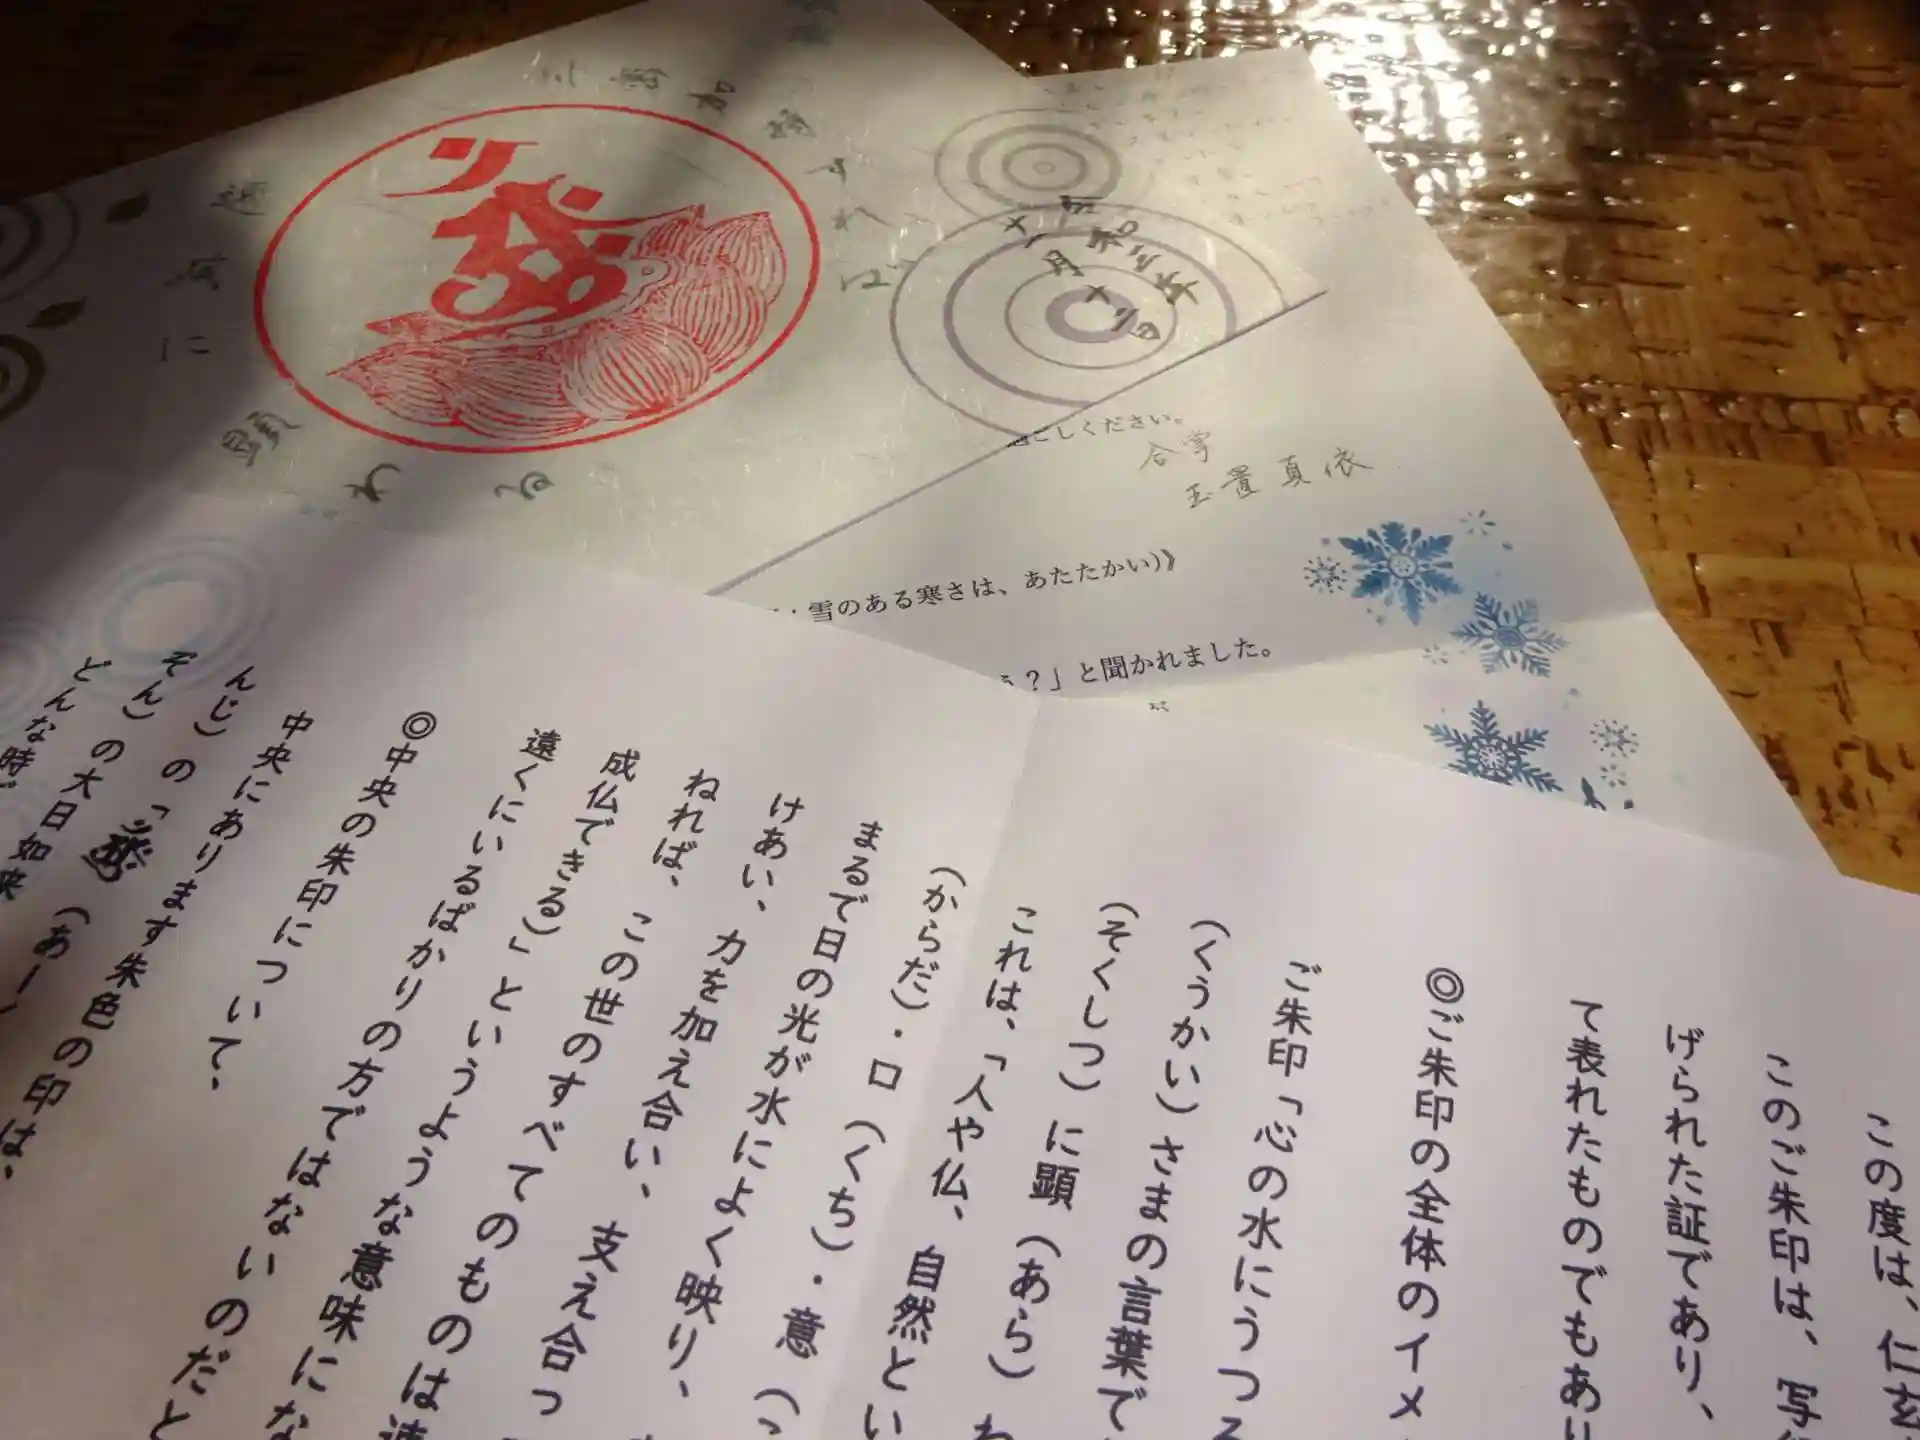 三密加持すれば
速疾に
顕わる
令和三年
十一月十一日
こしください。
合掌
玉置真依
・雪のある寒さは、あたたかい)》
う?」と聞かれました。
この度は、仁
このご朱印は、写
げられた証であり、
て表れたものでもあり
◎ご朱印の全体のイメ
ご朱印「心の水にうつる
(くうかい)さまの言葉で
(そくしつ)に顕(あら)わ
これは、「人や仏、自然とい
(からだ)・口(くち)・意(こ
まるで日の光が水によく映り、
けあい、力を加え合い、支え合っ
ねれば、この世のすべてのものは速
成仏できる)」というような意味にな
遠くにいるばかりの方ではないのだと
◎中央の朱印について、
中央にあります朱色の印は、
んじ)の「
(あー)
ぞん)の大日如来
どんな時